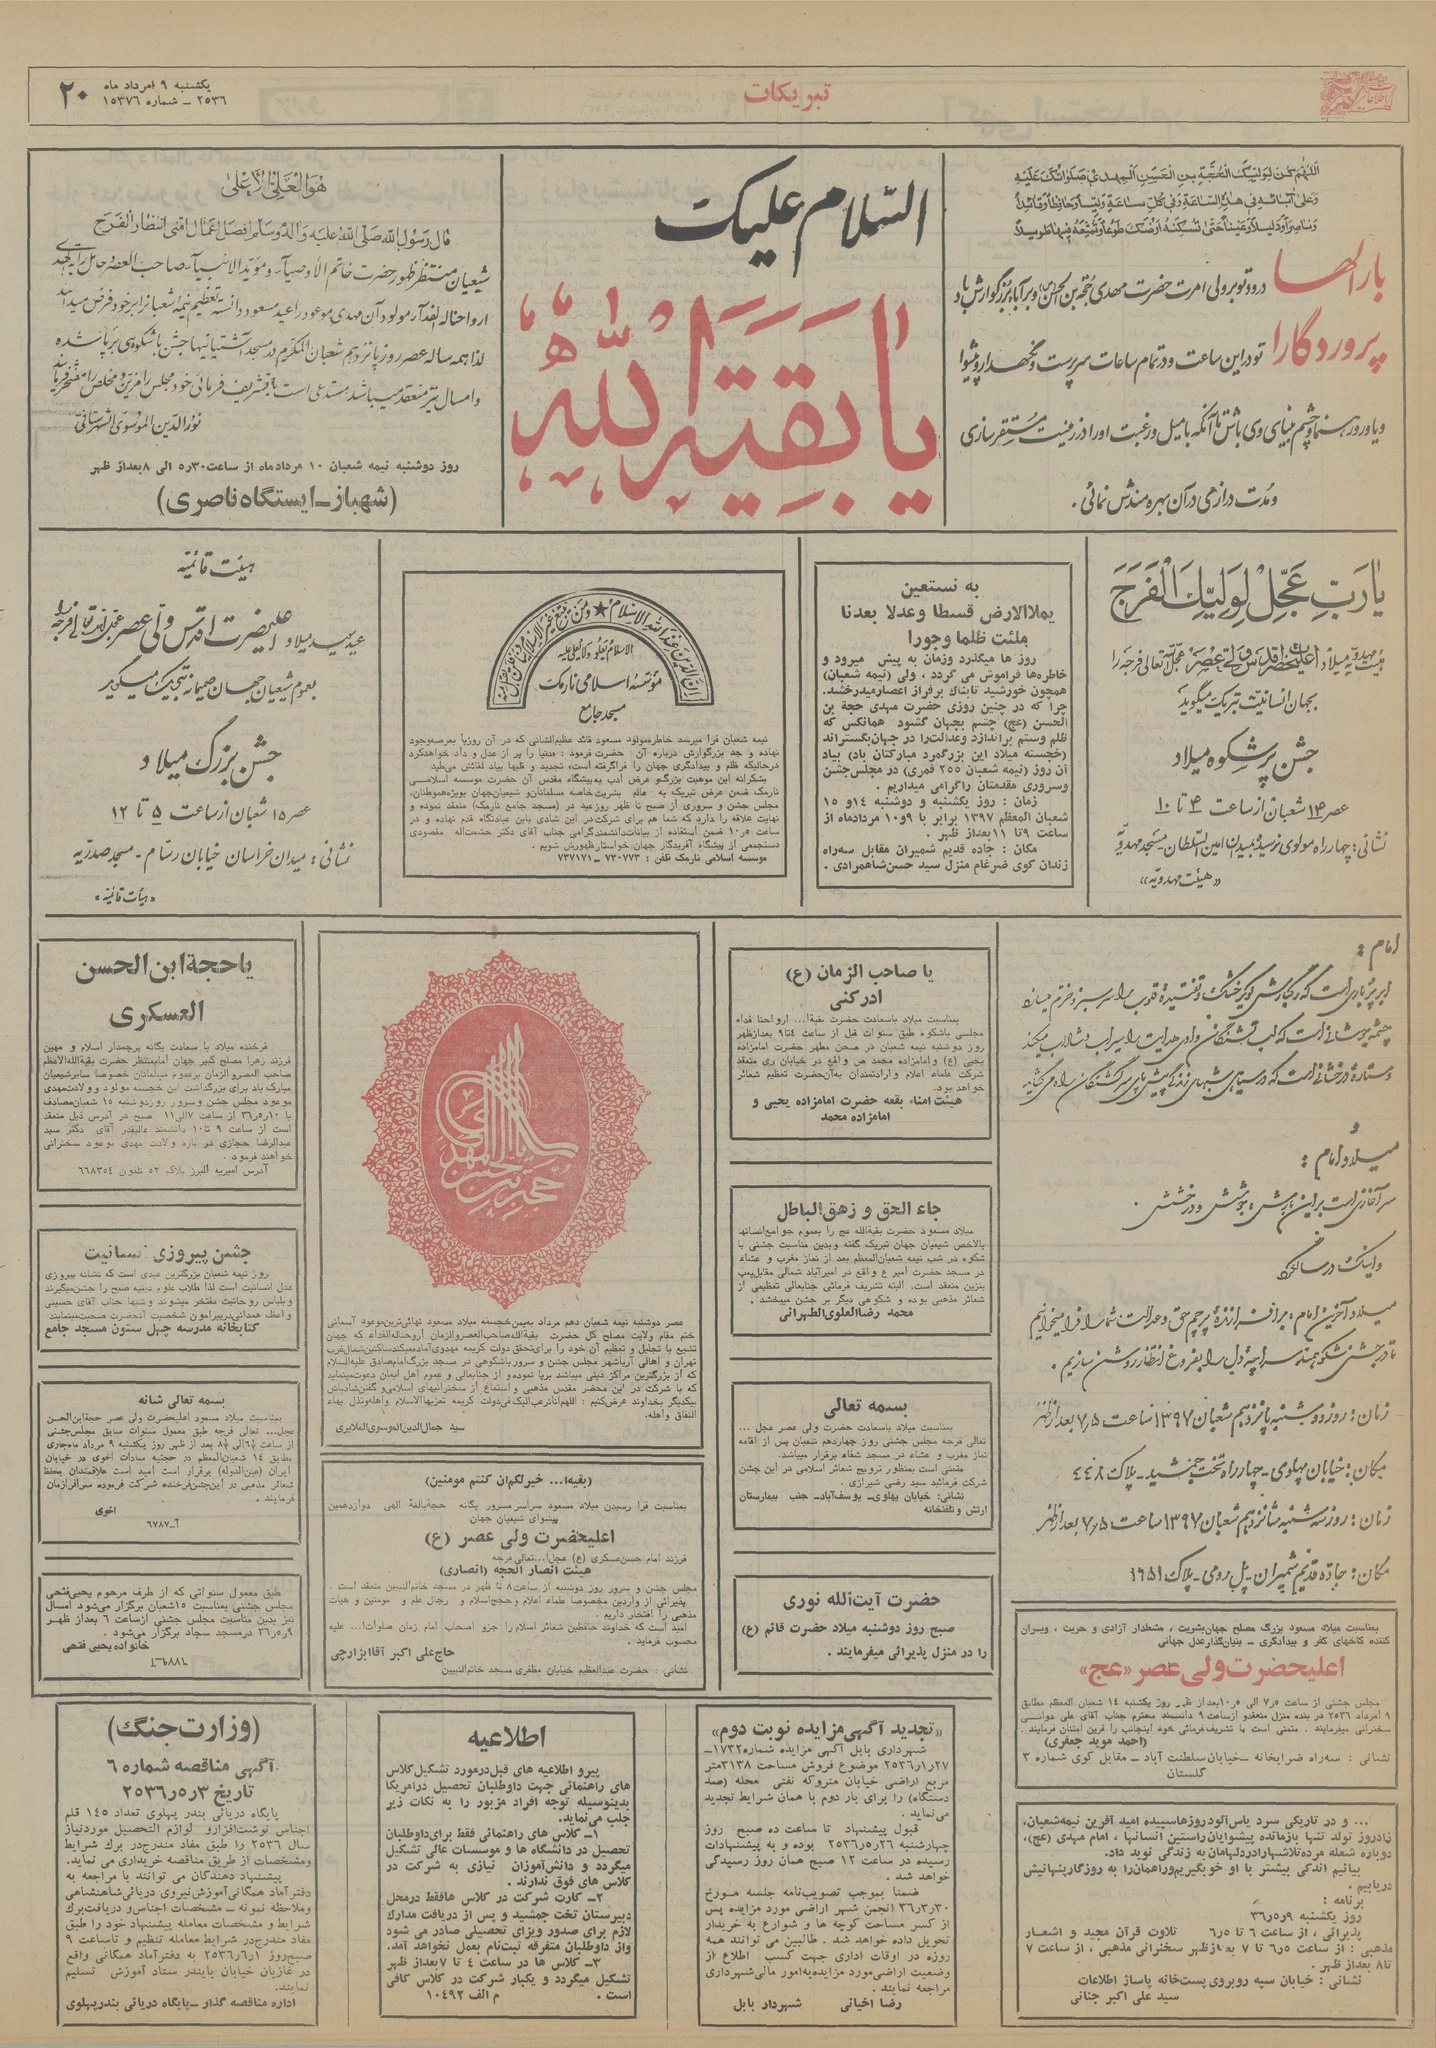 یکشنبه ۹ امرداد ماه
۲۵۳۶ ـ شماره ۱۵۳۷۶
۲۰
تبریکات
اطلاعات
اللهم کن لولیک الحجة بن الحسن المهدی صلواتک علیه
وعلی آبائه فی هذه الساعة وفی کل ساعة ولیا وحافظا وقائدا
وناصرا ودلیلا وعینا حتی تسکنه ارضک طوعا وتمتعه فیها طویلا
بارالها درود تو بر ولی امرت حضرت مهدی حجة بن الحسن و بر آباء بزرگوارش باد
پروردگارا تو در این ساعت و در تمام ساعات سرپرست و نگهدار و پیشوا
و یاور و رهنما و چشم بینای وی باش تا آنکه با میل و رغبت او را در زمینت مستقر سازی
و مدت درازی در آن بهره مندش نمائی .
السلام علیک
یا بقیة الله
هو العلی الاعلی
قال رسول الله صلی الله علیه واله وسلم افضل اعمال امتی انتظار الفرج
شیعیان منتظر ظهور حضرت خاتم الاوصیاء و موید الانبیاء صاحب العصر حامل رایة الهدی
ارواحنا له الفداء مولود آن مهدی موعود را عید مسعود دانسته تعظیم نیمه شعبان را بر خود فرض میدانند
لذا همه ساله عصر روز پانزدهم شعبان المکرم در مسجد آشتیانیها جشن باشکوهی برپا شده
و امسال نیز منعقد میباشد مستدعی است با تشریف فرمائی خود مجلس را مزین و مخلص را مفتخر فرمایند
نورالدین الموسوی الشهرستانی
روز دوشنبه نیمه شعبان ۱۰ مردادماه از ساعت ۵ر۳۰ الی ۸ بعداز ظهر
(شهباز ـ ایستگاه ناصری)
یا رب عجل لولیک الفرج
هیئت مهدویه میلاد اعلیحضرت اقدس ولی عصر عجل الله تعالی فرجه را
بجهان انسانیت تبریک میگوید
جشن پرشکوه میلاد
عصر ۱۴ شعبان از ساعت ۴ تا ۱۰
نشانی : چهارراه مولوی نرسیده بمیدان امین السلطان - مسجد مهدویه
«هیئت مهدویه»
به نستعین
یملاالارض قسطا وعدلا بعدنا
ملئت ظلما وجورا
روز ها میگذرد وزمان به پیش میرود و
خاطره‌ها فراموش می گردد ، ولی (نیمه شعبان)
همچون خورشید تابناک برفراز اعصارمیدرخشد.
چرا که در چنین روزی حضرت مهدی حجة بن
الحسن (عج) چشم بجهان گشود همانکس که
ظلم وستم براندازد وعدالت‌را در جهان‌بگستراند
(خجسته میلاد این بزرگمرد مبارکتان باد) بیاد
آن روز (نیمه شعبان ۲۵۵ قمری) در مجلس‌جشن
وسروری مقدمتان راگرامی میداریم .
زمان : روز یکشنبه و دوشنبه ۱۴و ۱۵
شعبان المعظم ۱۳۹۷ برابر با ۹و۱۰ مردادماه از
ساعت ۹تا ۱۱بعداز ظهر.
مکان : جاده قدیم شمیران مقابل سه‌راه
زندان کوی ضرغام منزل سید حسن‌شاهمرادی .
ان الدین عند الله الاسلام ★ ومن یبتغ غیر الاسلام دینا فلن یقبل منه
الاسلام یعلو و لا یعلی علیه
مؤسسه اسلامی نارمک
مسجد جامع
نیمه شعبان فرا میرسد خاطره‌مولود مسعود قائد عظیم‌الشانی که در آن روزپا بعرصه‌وجود
نهاده و جد بزرگوارش درباره آن حضرت فرمود : «دنیا را پر از عدل و داد خواهدکرد
درحالیکه ظلم و بیدادگری جهان را فراگرفته است» تجدید و قلبها بیاد لقائش می‌طپد
بشکرانه این موهبت بزرگ‌و عرض ادب به‌پیشگاه مقدس آن حضرت موسسه اسلامی
نارمک ضمن عرض تبریک به عالم بشریت خاصه مسلمانان‌و شیعیان‌جهان بویژه‌هموطنان،
مجلس جشن و سروری از صبح تا ظهر روزعید در (مسجد جامع نارمک) منعقد نموده و
نهایت علاقه را دارد که شما هم برای شرکت‌در این شادی باین عبادتگاه قدم نهاده و در
ساعت ۵ر۱۰ ضمن استفاده از بیانات‌دانشمندگرامی جناب آقای دکتر حشمت‌اله مقصودی
دستجمعی از پیشگاه آفریدگار جهان خواستارظهورش شویم .
موسسه اسلامی نارمک تلفن : ۷۳۰۷۷۳ـ ۷۳۷۱۷۱
هیئت قائمیه
عید سعید میلاد اعلیحضرت اقدس ولی عصر عجل الله تعالی فرجه را
بعموم شیعیان جهان صمیمانه تبریک میگوید
جشن بزرگ میلاد
عصر ۱۵ شعبان از ساعت ۵ تا ۱۲
نشانی : میدان خراسان خیابان رسام - مسجد صدریه
«هیأت قائمیه»
امام :
چشمه جوشانی است که لب تشنگان وادی هدایت را سیراب و شاداب میکند
میلاد امام :
سرآغازی است بر این بارش ، جوشش و درخشش .
و اینک در سالگرد
میلاد آخرین امام ، برافرازنده پرچم حق و عدالت شما را فرا میخوانیم
زمان : روز دوشنبه پانزدهم شعبان ۱۳۹۷ ساعت ۷٫۵ بعدازظهر
مکان : خیابان پهلوی - چهارراه تخت جمشید - پلاک ۴۴۸
زمان : روز سه شنبه شانزدهم شعبان ۱۳۹۷ ساعت ۷٫۵ بعدازظهر
مکان : جاده قدیم شمیران - پل رومی - پلاک ۱۶۵۱
بمناسبت میلاد مسعود بزرگ مصلح جهان‌بشریت ، مشعلدار آزادی و حریت ، ویران
کننده کاخهای کفر و بیدادگری ـ بنیان‌گذارعدل جهانی
اعلیحضرت ولی عصر «عج»
مجلس جشنی از ساعت ۵ر۷ الی ۵ر۱۰بعداز ظهر روز یکشنبه ۱۴ شعبان المعظم مطابق
۹ امرداد ۲۵۳۶ در بنده منزل منعقدو ازساعت ۹ دانشمند محترم جناب آقای علی دوانی
سخنرانی میفرمایند . متمنی است با تشریف‌فرمائی خود اینجانب را قرین امتنان فرمایند .
(احمد موید جعفری)
نشانی : سه‌راه ضرابخانه ـ خیابان سلطنت آباد ـ مقابل کوی شماره ۳
گلستان
... و در تاریکی سرد یاس‌آلود روزهاسپیده امید آفرین نیمه‌شعبان،
زادروز تولد تنها بازمانده پیشوایان‌راستین انسانها ، امام مهدی (عج)،
دوباره شعله مرده‌تلاشهارادردلهامان به زندگی نوید داد.
بیائیم اندکی بیشتر با او خوبگیریم‌وراهمان‌را به روزگارپنهانیش
دریابیم .
برنامه :
روز یکشنبه ۳۶ر۵ر۹
پذیرائی ، از ساعت ۶ تا ۵ر۶ تلاوت قرآن مجید و اشعار
مذهبی : از ساعت ۵ر۶ تا ۷ بعدازظهر سخنرانی مذهبی ، از ساعت ۷
تا۸ بعداز ظهر .
نشانی : خیابان سپه روبروی پست‌خانه پاساژ اطلاعات
سید علی اکبر جنانی
یا صاحب الزمان (ع)
ادرکنی
بمناسبت میلاد باسعادت حضرت بقیةا... ارواحنا فداه
مجلسی باشکوه طبق سنوات قبل از ساعت ۴تا۹ بعدازظهر
روز دوشنبه نیمه شعبان در صحن مطهر حضرت امامزاده
یحیی (ع) وامامزاده محمد ص واقع در خیابان ری منعقد
شرکت علماء اعلام و ارادتمندان به‌آن‌حضرت تعظیم شعائر
خواهد بود.
هیئت امناء بقعه حضرت امامزاده یحیی و
امامزاده محمد
جاء الحق و زهق‌الباطل
میلاد مسعود حضرت بقیةالله عج را بعموم جوامع‌انسانها
بالاخص شیعیان جهان تبریک گفته وبدین مناسبت جشنی با
شکوه در شب نیمه شعبان‌المعظم بعد از نماز مغرب و عشاء
در مسجد حضرت امیر ع واقع در امیرآباد شمالی مقابل‌پمپ
بنزین منعقد است. البته تشریف فرمائی جنابعالی تعظیمی از
شعائر مذهبی بوده و شکوهی دیگر بر جشن میبخشد .
محمد رضا‌العلوی‌الطهرانی
بسمه تعالی
بمناسبت میلاد باسعادت حضرت ولی عصر عجل ...
تعالی فرجه مجلس جشنی روز چهاردهم شعبان پس از اقامه
نماز مغرب و عشاء در مسجد شفاء برقرار میباشد.
مقتنی است بمنظور ترویج شعائر اسلامی در این جشن
شرکت فرمائید سید رضی شیرازی .
نشانی: خیابان پهلوی‌ـ یوسف‌آبادـ جنب بیمارستان
ارتش و تلفنخانه
حضرت آیت‌الله نوری
صبح روز دوشنبه میلاد حضرت قائم (ع)
را در منزل پذیرائی میفرمایند .
عصر دوشنبه نیمه شعبان دهم مرداد بمین خجسته میلاد مسعود نهائی‌ترین‌موعود آسمانی
ختم مقام ولایت مصلح کل حضرت بقیةالله‌صاحب‌العصروالزمان اروحناله‌الفداء که جهان
تشیع با تجلیل و تعظیم آن خود را برای‌تحقق دولت کریمه مهدوی‌آماده‌میکندساکنین‌شمال‌غرب
تهران و اهالی آریاشهر مجلس جشن و سرور باشکوهی در مسجد بزرگ‌امام‌صادق علیه‌السلام
که از بزرگترین مراکز دینی میباشد برپا نموده‌و از جنابعالی و عموم اهل ایمان دعوت‌مینماید
که با شرکت در این محضر مقدس مذهبی و استماع از سخنرانیهای اسلامی‌و گفتن‌شادباش
بیکدیگر بخداوند عرض‌کنیم : اللهم‌انانرغب‌الیک‌فی‌دولت کریمه تعزبها‌الاسلام واهله‌وتذل بها‌ء
النفاق واهله.
سید جمال‌الدین‌الموسوی‌الملایری
(بقیةا... خیرلکم‌ان کنتم مومنین)
بمناسبت فرا رسیدن میلاد مسعود سراسر سرور یگانه حجة‌بالغة الهی دوازدهمین
پیشوای شیعیان جهان
اعلیحضرت ولی عصر (ع)
فرزند امام حسن‌عسکری (ع) عجل‌ا...تعالی فرجه
هیئت انصار الحجه (انصاری)
مجلس جشن و سرور روز دوشنبه از ساعت۸ تا ظهر در مسجد خاتم‌النبیین منعقد است .
پذیرائی از واردین مخصوصا علماء اعلام وحجج‌اسلام و رجال علم و مومنین و هیات
مذهبی را افتخار داریم .
امید است که خداوند حافظین شعائر اسلام‌را جزو اصحاب امام زمان صلوات‌ا... علیه
محسوب فرماید .
حاج‌علی اکبر آقاابزارچی
نشانی : حضرت عبدالعظیم خیابان مظفری مسجد خاتم‌النبیین
یاحجة ابن الحسن
العسکری
فرخنده میلاد با سعادت یگانه پرچمدار اسلام و مهین
فرزند زهرا مصلح کبیر جهان امام‌منتظر حضرت بقیةالله‌الاعظم
صاحب العصرو‌الزمان برعموم مسلمانان خصوصا سایرشیعیان
مبارک باد برای بزرگداشت این خجسته مولود و ولادت‌مهدی
موعود مجلس جشن و سرور روزدوشنبه ۱۵ شعبان‌مصادف
با ۳۶ر۵ر۱۰ از ساعت ۷الی۱۱ صبح در آدرس ذیل منعقد
است از ساعت ۹ تا۱۰ دانشمند عالیقدر آقای دکتر سید
عبدالرضا حجازی در باره ولادت مهدی موعود سخنرانی
خواهند فرمود .
آدرس امیریه البرز پلاک ۵۲ تلفون ۶۶۸۳۵۴
جشن پیروزی انسانیت
روز نیمه شعبان بزرگترین عیدی است که نشانه پیروزی
عدل انسانیت است لذا طلاب علوم دینیه صبح را جشن‌میگیرند
و بلباس روحانیت مفتخر میشوند و شبها جناب آقای حسینی
و اعظ همدانی‌درپیرامون شخصیت آنحضرت صحبت‌مینمایند
کتابخانه مدرسه چهل ستون مسجد جامع
بسمه تعالی شانه
بمناسبت میلاد مسعود اعلیحضرت ولی عصر حجةابن‌الحسن
عجل... تعالی فرجه طبق معمول سنوات سابق مجلس‌جشنی
از ساعت ۶½الی ۸½ بعد از ظهر روز یکشنبه ۹ مرداد ماه‌جاری
مطابق ۱۴ شعبان‌المعظم در حجتیه سادات اخوی در خیابان
ایران (عین‌الدوله) برقرار است امید است علاقمندان بحفظ
شعائر مذهبی در این‌جشن‌فرخنده شرکت فرموده سرافرازمان
فرمایند .
اخوی
آ-۶۷۸۷
طبق معمول سنواتی که از طرف مرحوم یحیی‌فتحی
مجلس جشنی بمناسبت ۱۵شعبان برگزار می‌شود امسال
نیز بدین مناسبت مجلس جشنی ازساعت ۶ بعداز ظهر
۳۶ر۵ر۹ درمسجد سجاد برگزار می‌شود .
خانواده یحیی فتحی
«تجدید آگهی‌مزایده نوبت دوم»
شهرداری بابل آگهی مزایده شماره۱۷۳۲ـ
۲۵۳۶ر۱ر۲۷ موضوع فروش مساحت ۳۱۳۸متر
مربع اراضی خیابان متروکه نفتی محله (صد
دستگاه) را برای بار دوم با همان شرایط تجدید
می‌نماید .
قبول پیشنهاد تا ساعت ده صبح روز
چهارشنبه ۲۵۳۶ر۵ر۲۶ بوده و به پیشنهادات
رسیده در ساعت ۱۲ صبح همان روز رسیدگی
خواهد شد .
ضمنا بموجب تصویب‌نامه جلسه مورخ
۳۶ر۳ر۳۰ انجمن شهر اراضی مورد مزایده پس
از کسر مساحت کوچه ها و شوارع به خریدار
تحویل داده خواهد شد . طالبین می توانند همه
روزه در اوقات اداری جهت کسب اطلاع از
وضعیت اراضی‌مورد مزایده‌به‌امور مالی‌شهرداری
مراجعه نمایند .
رضا اخیانی شهردار بابل
اطلاعیه
پیرو اطلاعیه های قبل‌درمورد تشکیل‌کلاس
های راهنمائی جهت داوطلبان تحصیل درامریکا
بدینوسیله توجه افراد مزبور را به نکات زیر
جلب می‌نماید.
۱ـ کلاس های راهنمائی فقط برای‌داوطلبان
تحصیل در دانشگاه ها و موسسات عالی تشکیل
میگردد و دانش‌آموزان نیازی به شرکت در
کلاس های فوق ندارند .
۲ـ کارت شرکت در کلاس هافقط درمحل
دبیرستان تخت جمشید و پس از دریافت مدارک
لازم برای صدور ویزای تحصیلی صادر می شود
واز داوطلبان متفرقه ثبت‌نام بعمل نخواهد آمد.
۳ـ کلاس ها در ساعت ۴ تا ۷بعداز ظهر
تشکیل میگردد و یکبار شرکت در کلاس کافی
است . م الف ۱۰۴۹۲
(وزارت‌جنگ)
آگهی مناقصه شماره ۶
تاریخ ۲۵۳۶ر۵ر۳
پایگاه دریائی بندر پهلوی تعداد ۱۴۵ قلم
اجناس نوشت‌افزارو لوازم التحصیل موردنیاز
سال ۲۵۳۶ را طبق مفاد مندرج‌در برگ شرایط
ومشخصات از طریق مناقصه خریداری می نماید.
پیشنهاد دهندگان می توانند با مراجعه به
دفترآماد همگانی‌آموزش‌نیروی دریائی‌شاهنشاهی
وملاحظه نمونه ـ مشخصات اجناس‌و دریافت‌برگ
شرایط و مشخصات معامله پیشنهاد خود را طبق
مفاد مندرج‌در شرایط معامله تنظیم و تاساعت ۹
صبح‌روز ۲۵۳۶ر۶ر۱ به دفترآماد همگانی واقع
در غازیان خیابان پایندر ستاد آموزش تسلیم
نمایند.
اداره مناقصه گذار ـ پایگاه دریائی بندرپهلوی